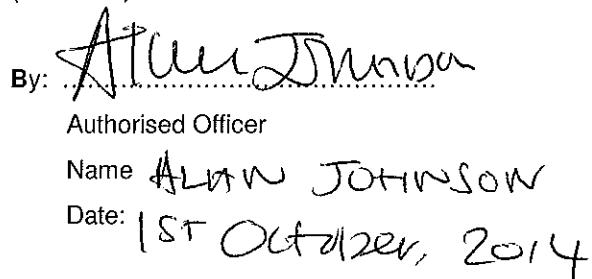 By: Alan Johnson
Authorised Officer
Name ALAN JOHNSON
Date: 1ST October, 2014